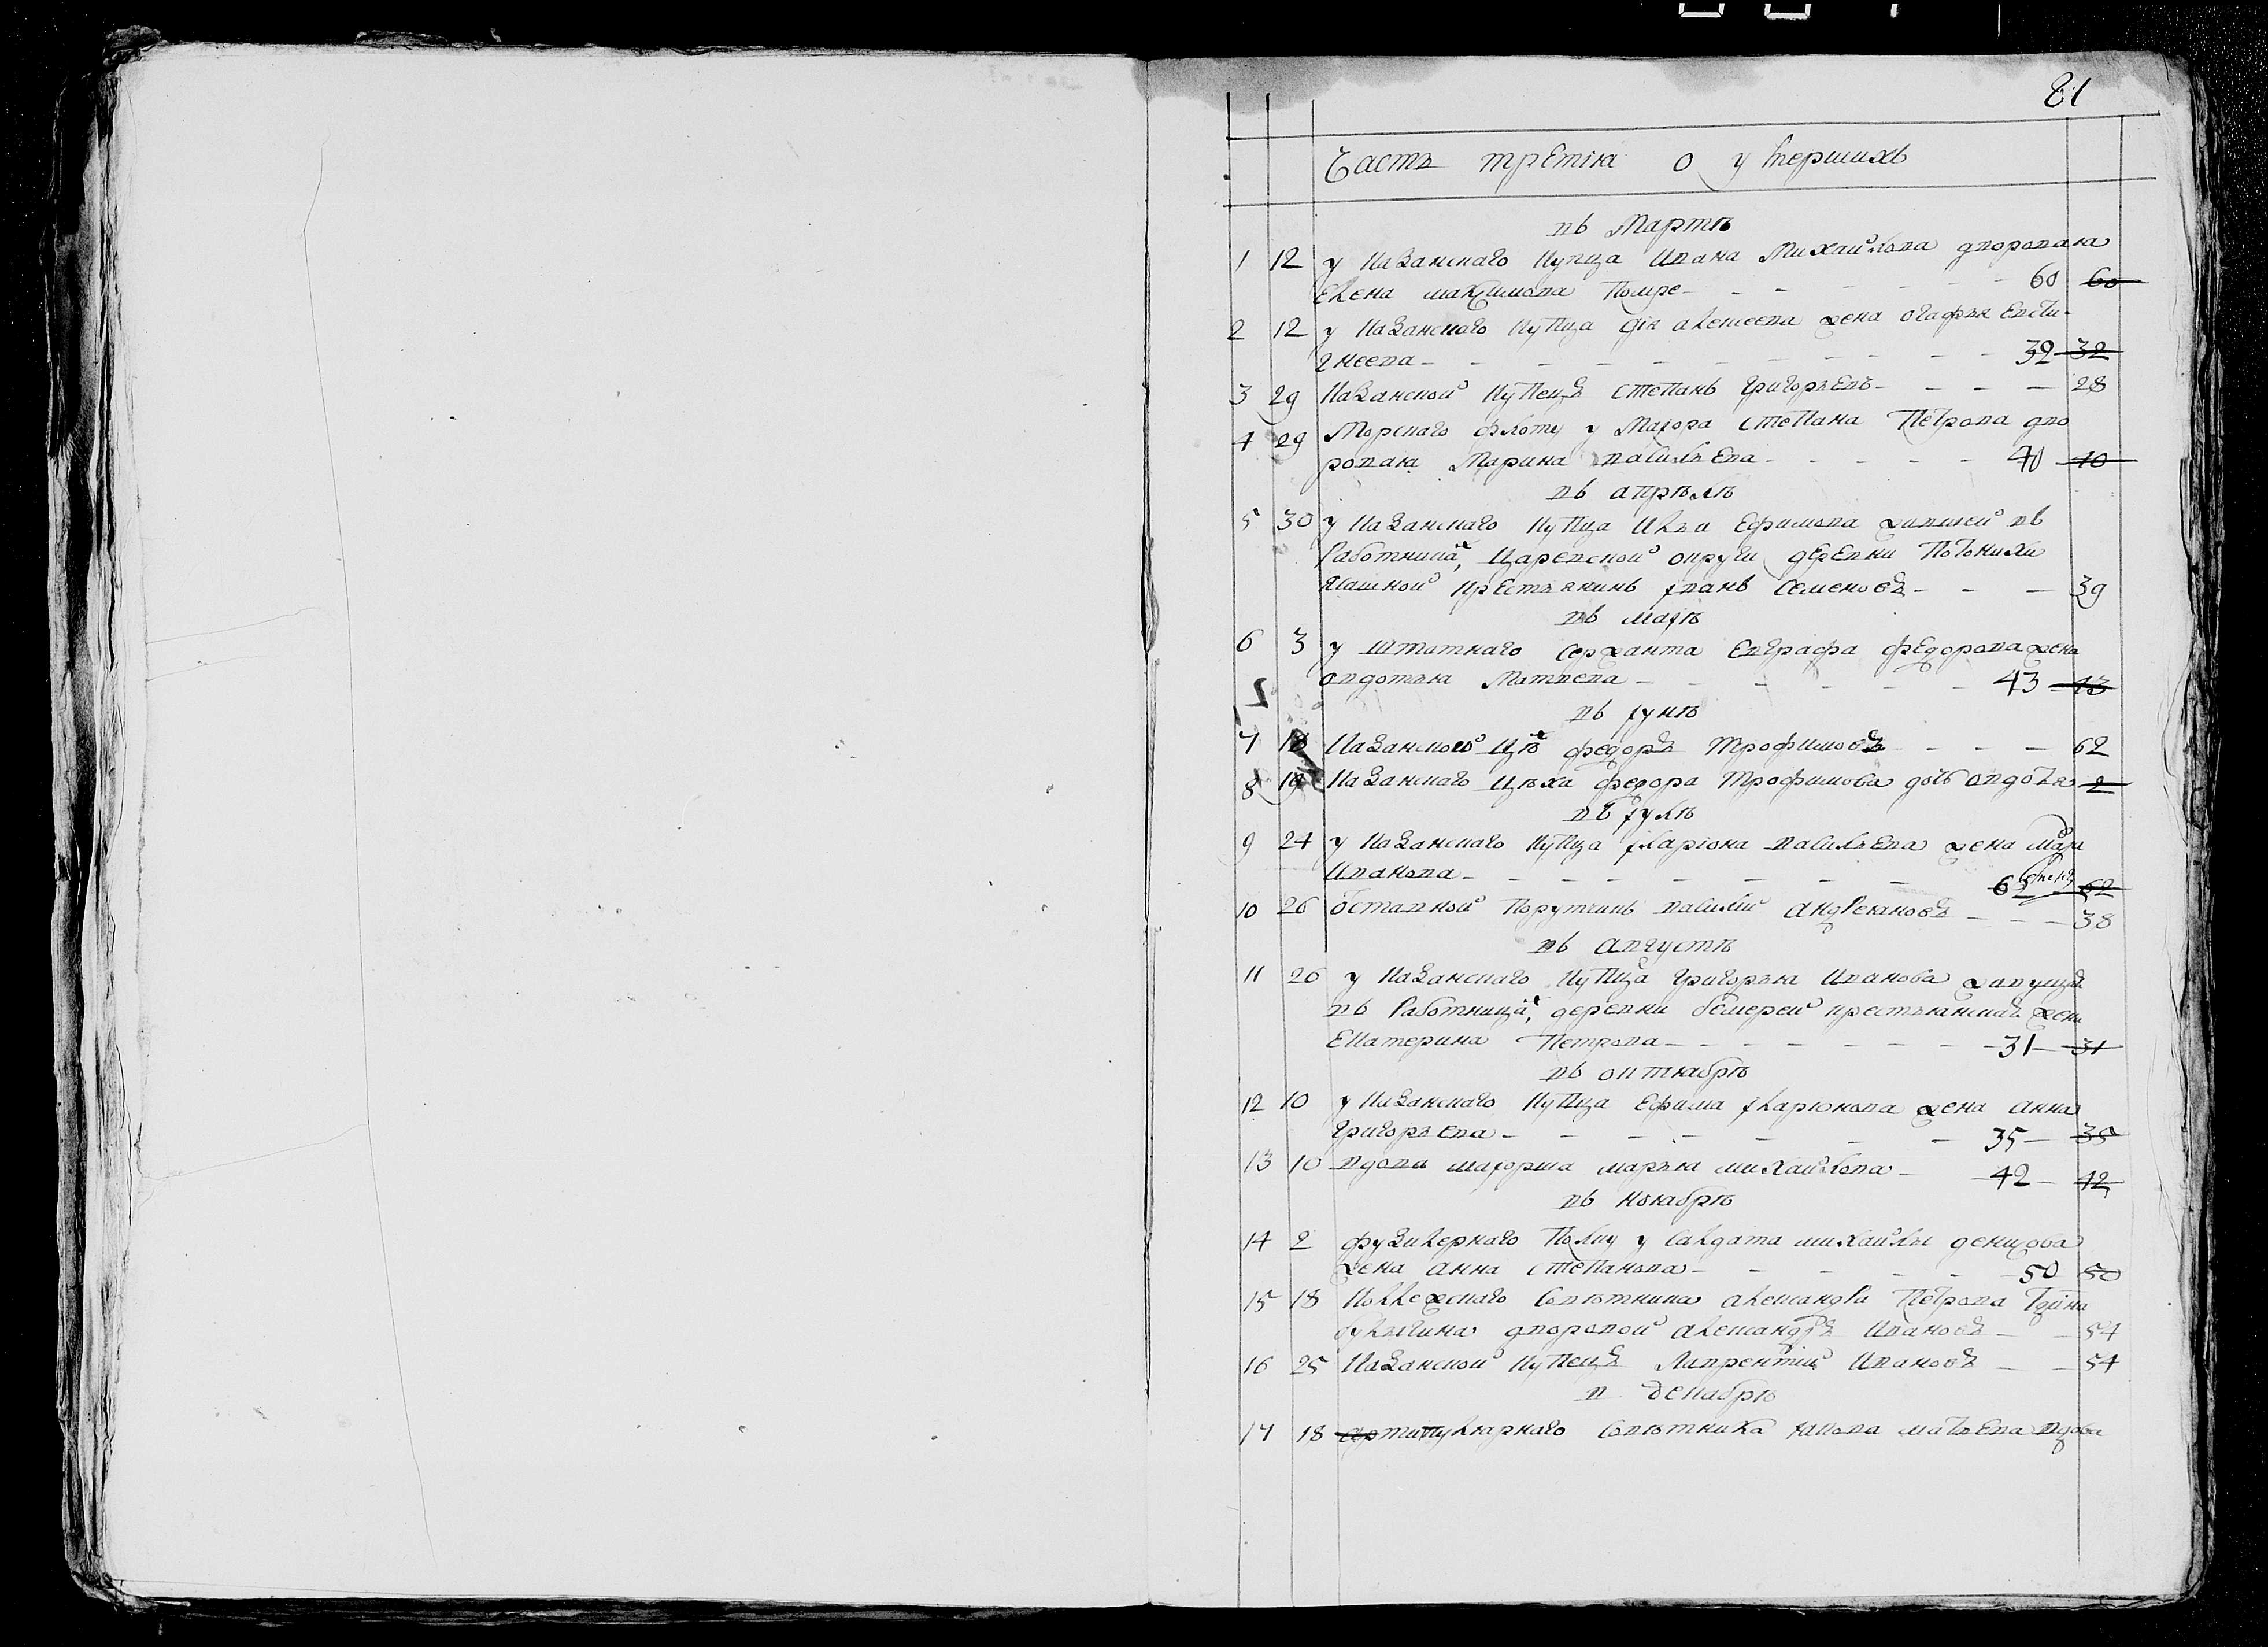 81
Часть третiя о умершихъ
въ Мартѣ
1 12 у казанскаго купца Ивана Михайлова дворовая
Елена максимова 60 60
2 12 у казанскаго купца алексеева жена огафья евсти-
гнеева 32 32
3 29 казанской купецъ степанъ григорьевъ 28
4 29 Морскаго флоту у Маiора степана Петрова дво
ровая Марина васильева 40 40
въ апрѣлѣ
5 30 у казанскаго купца Ильи Ефимова жившей въ
работникахъ, Царевской округи деревни
ясашной крестьянинъ iванъ семеновъ 39
въ маiѣ
6 3 у штатнаго сержанта евграфа федорова жена
овдотья Матвеева 43 43
въ iунѣ
7 18 казанского цѣх федоръ трофимовъ 62
8 19 казанскаго цѣха федора трофимова дочь овдотья 2
въ iулѣ
9 24 у казанскаго купца iларiона васильева жена
Иванова 62 62
10 26 отставной порутчикъ василий андреяновъ 38
въ августѣ
11 26 у казанскаго купца григорья Иванова живущая
въ работницах, деревни крестьянская жена
Екатерина Петрова 31 31
въ октябрѣ
12 10 у казанскаго купца ефима iларионова жена анна
григорьева 35 35
13 10 вдова маiорша марья михайлова 42 42
въ ноябрѣ
14 2 фузилернаго полку у салдата михайлы денисова
жена анна степанова 50 50
15 18 коллежскаго советника александра Петрова
дворовой александръ Ивановъ 54
16 25 казанской купецъ лаврентий Ивановъ 54
в декабрѣ
17 18 советника матвева вдова